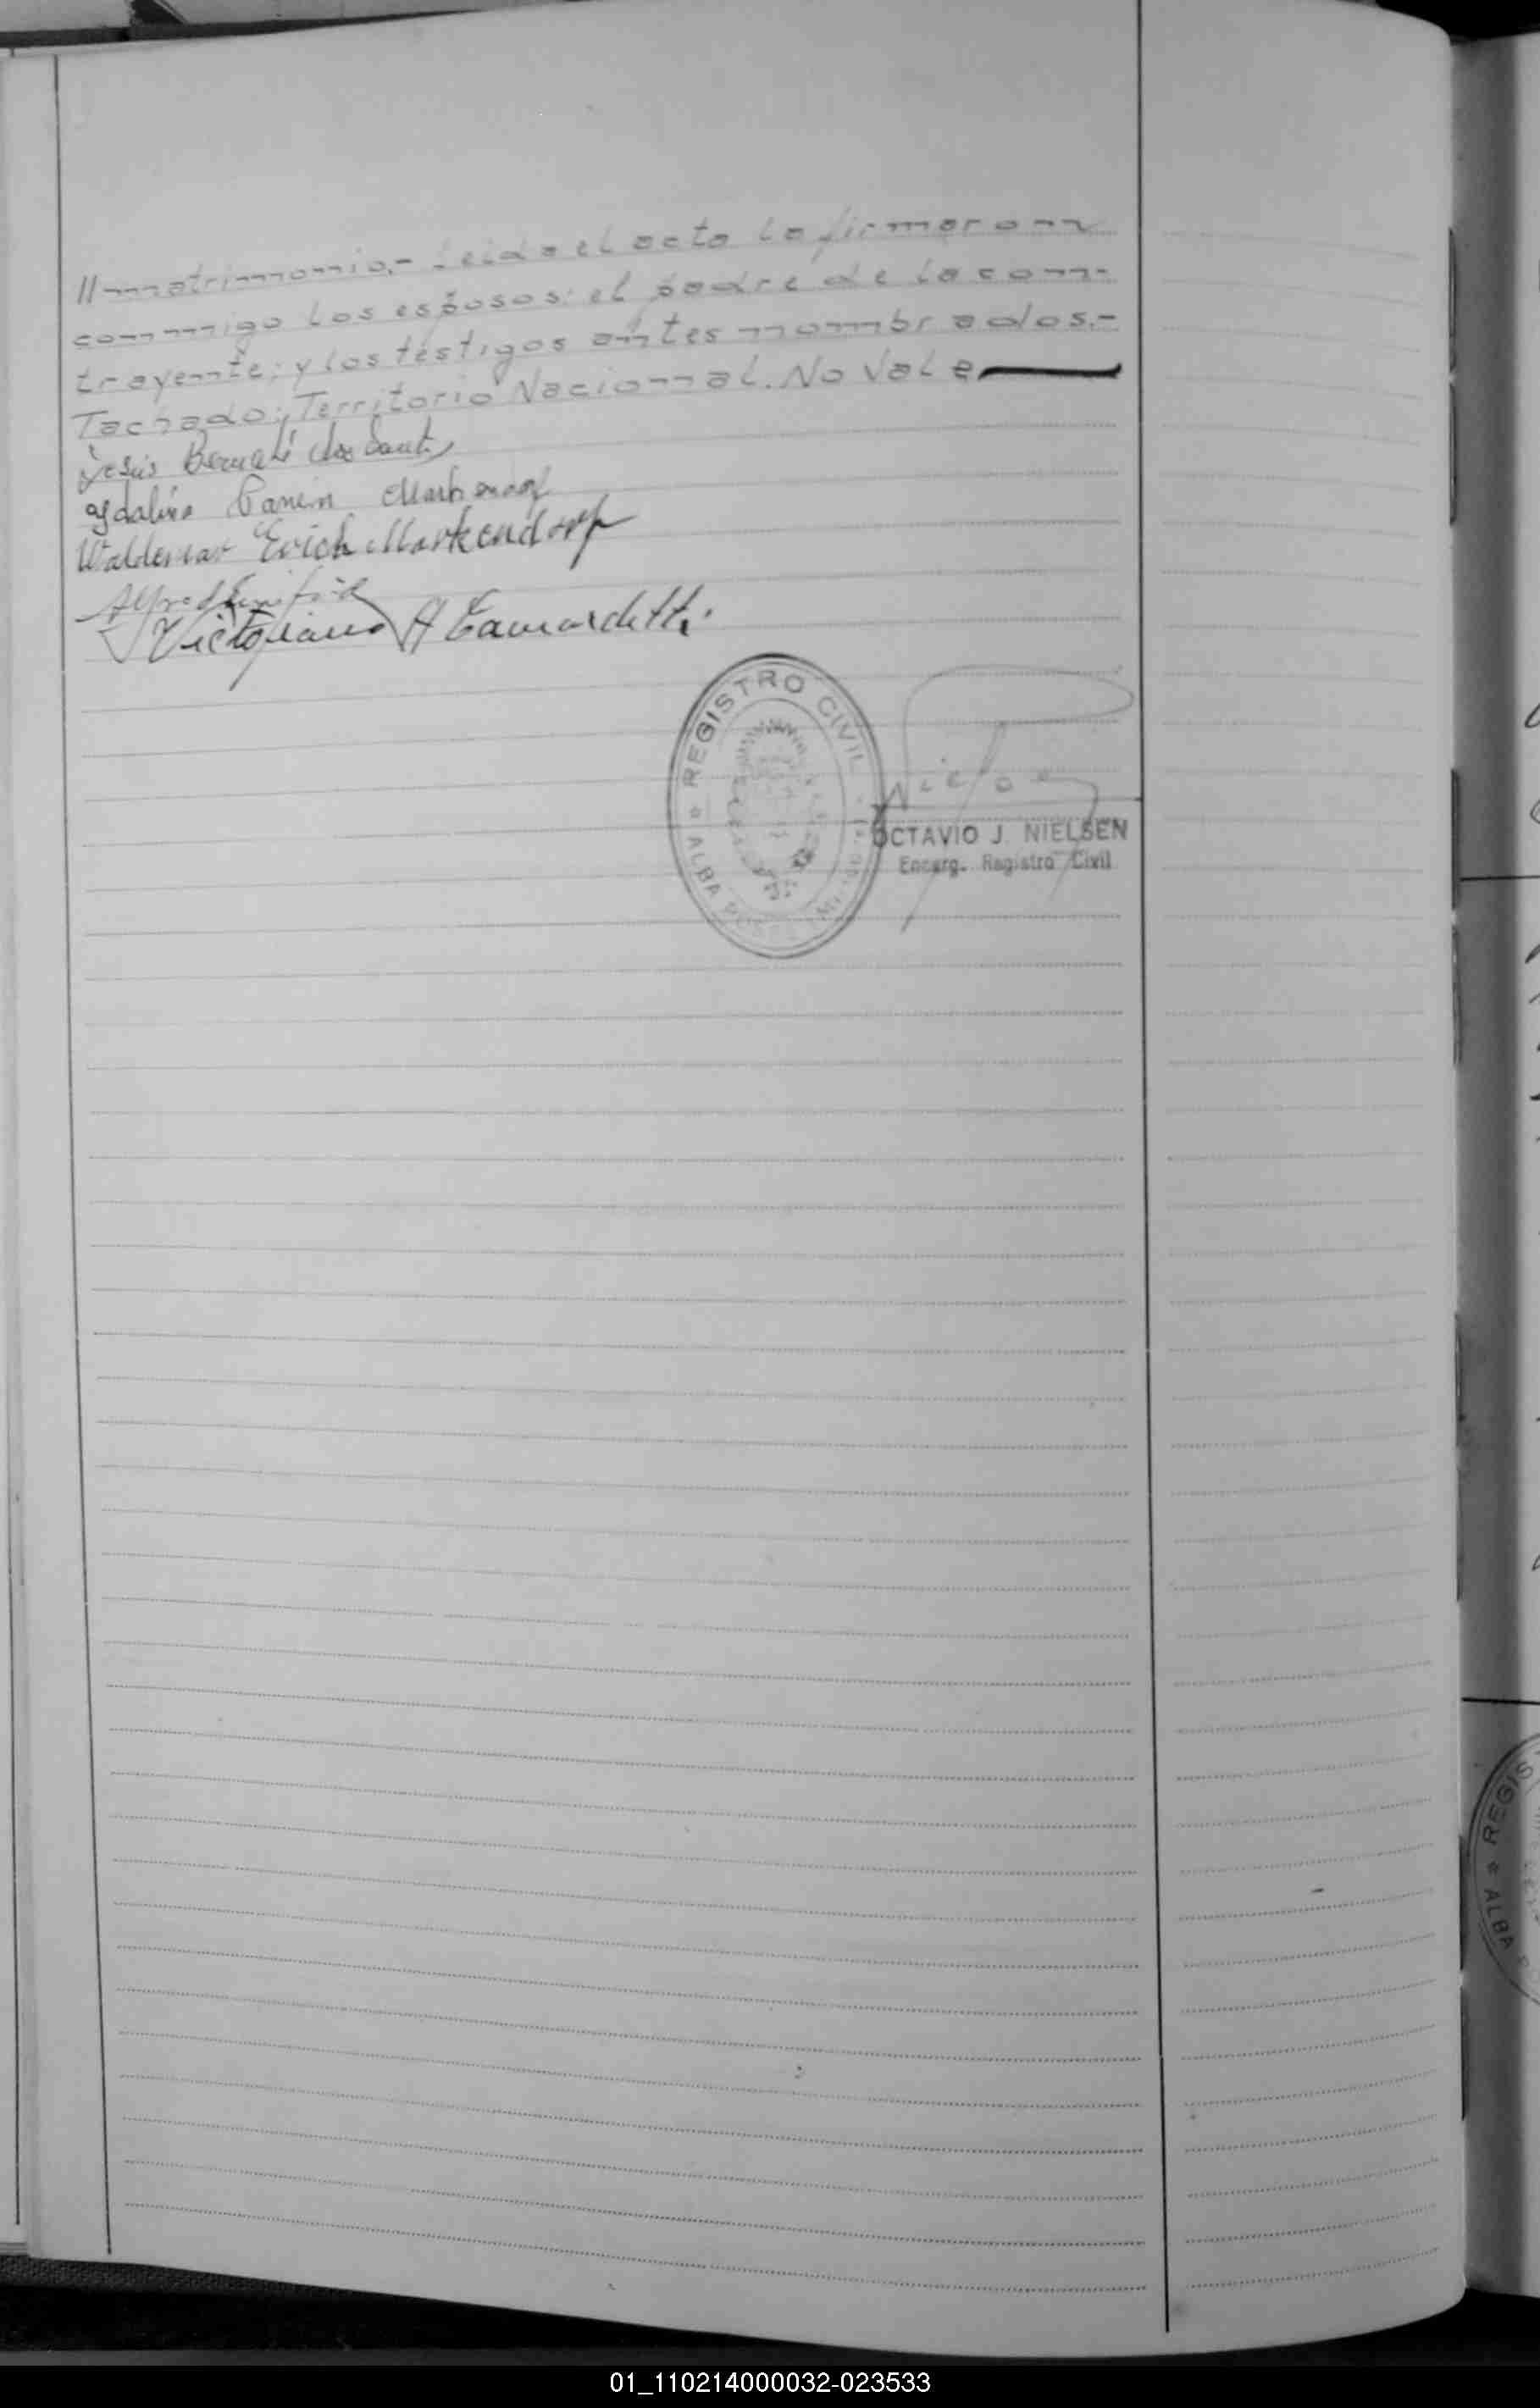 // matrimonio.- Leida el acta la firmaron
conmigo los esposos: el padre de la con-
trayente; y los testigos antes nombrados.-
Tachado: Territorio Nacional. No Vale
Jesús Bernabé dos Santos
Waldemar Erich Markendorf
Victoriano A
REGISTRO CIVIL
ALBA POSSE
OCTAVIO J. NIELSEN
Encarg. Registro Civil
REGIS
ALBA
01_110214000032-023533